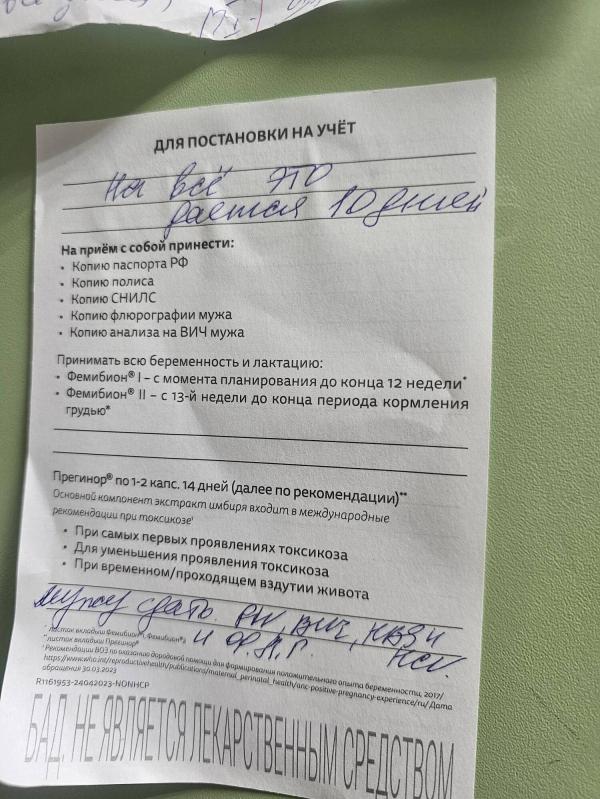 ДЛЯ ПОСТАНОВКИ НА УЧЁТ
На всё это
даётся 10 дней
На приём с собой принести:
• Копию паспорта РФ
• Копию полиса
• Копию СНИЛС
• Копию флюрографии мужа
• Копию анализа на ВИЧ мужа
Принимать всю беременность и лактацию:
• Фемибион® I – с момента планирования до конца 12 недели*
• Фемибион® II – с 13-й недели до конца периода кормления
грудью*
Прегинор® по 1-2 капс. 14 дней (далее по рекомендации)**
Основной компонент экстракт имбиря входит в международные
рекомендации при токсикозе¹
• При самых первых проявлениях токсикоза
• Для уменьшения проявления токсикоза
• При временном/проходящем вздутии живота
мужу сдать RW, ВИЧ, HBS и
и Ф.Л.Г. HCV.
* листок вкладыш Фемибион®I, Фемибион®II
** листок вкладыш Прегинор®
¹ Рекомендации ВОЗ по оказанию дородовой помощи для формирования положительного опыта беременности, 2017/
https://www.who.int/reproductivehealth/publications/maternal_perinatal_health/anc-positive-pregnancy-experience/ru/ Дата
обращения 30.03.2023
R1161953-24042023-NONHCP
БАД. НЕ ЯВЛЯЕТСЯ ЛЕКАРСТВЕННЫМ СРЕДСТВОМ